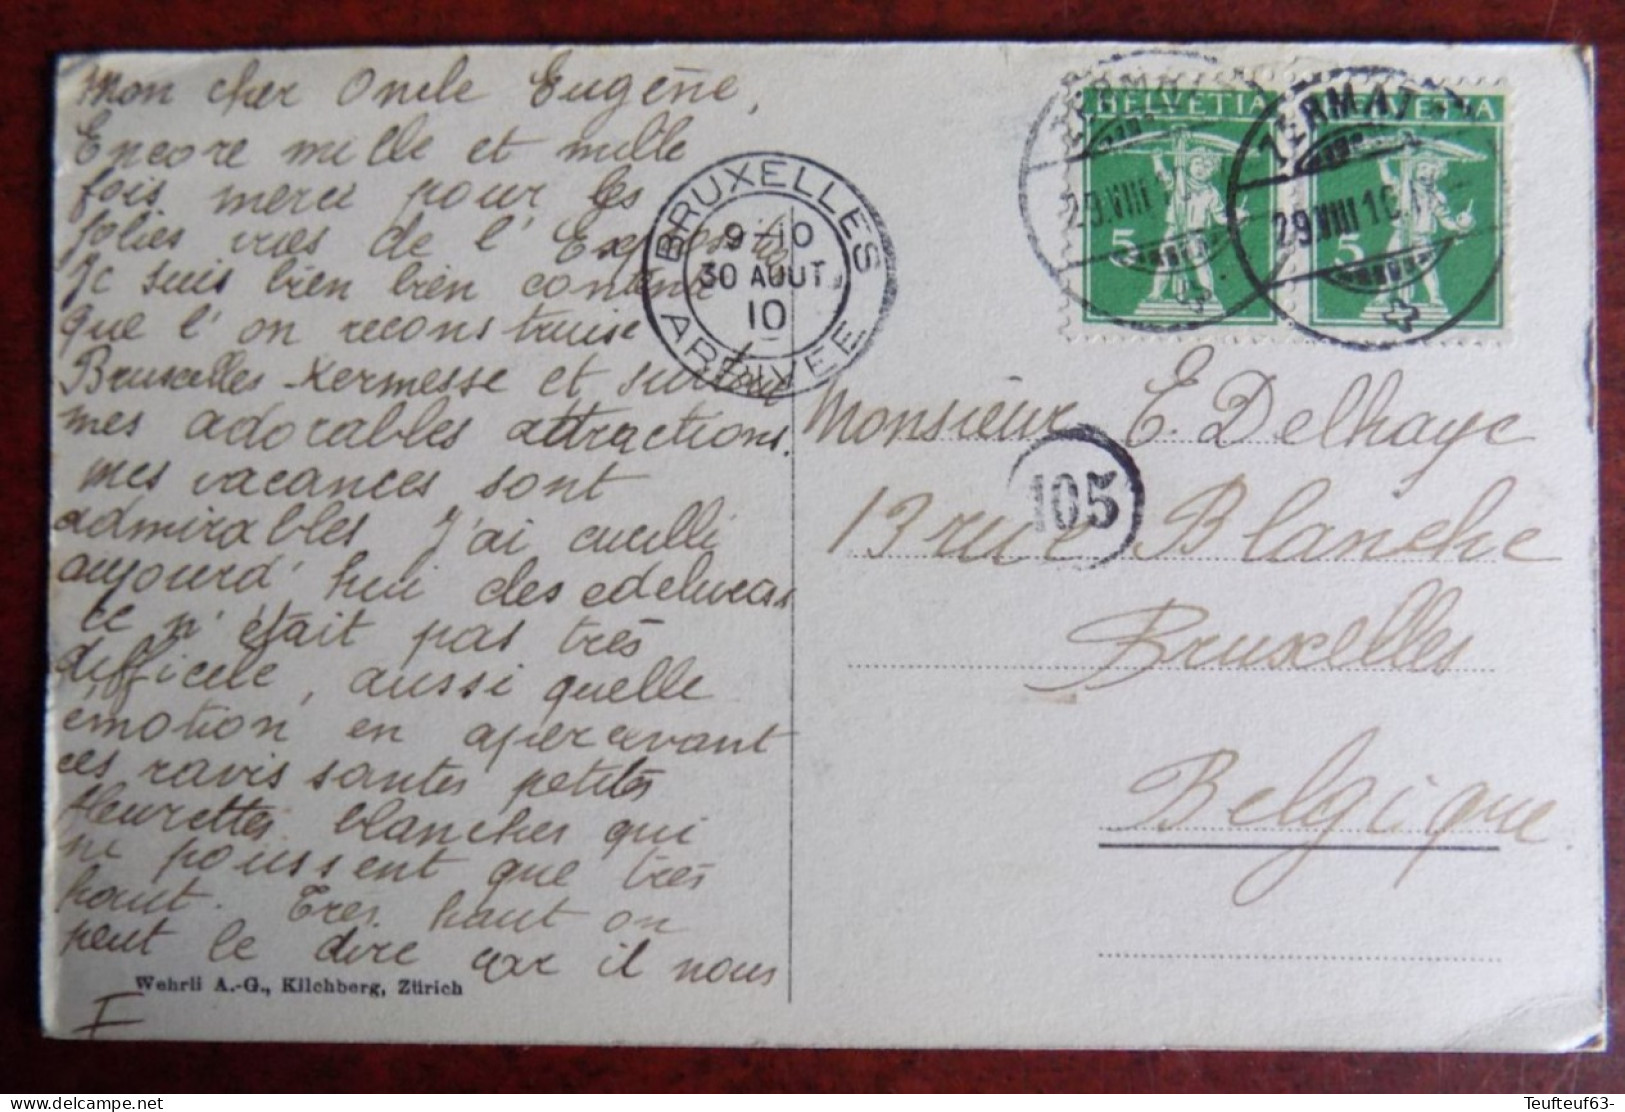 Mon cher Oncle Eugène,
Encore mille et mille
fois merci pour les
jolies vues de l'Exposition
Je suis bien bien contente
que l'on reconstruise
Bruxelles Kermesse et surtout
mes adorables attractions.
mes vacances sont
admirables J'ai cueilli
aujourd'hui des edelweiss
ce n'était pas très
difficile, aussi quelle
émotion en apercevant
ces ravissantes petites
fleurettes blanches qui
ne poussent que très
haut. Très haut on
peut le dire car il nous
Wehrli A.-G., Kilchberg, Zürich
BRUXELLES
9-10
30 AOUT
10
ARRIVEE
HELVETIA
5
ZERMATT
29.VIII 10
HELVETIA
5
ZERMATT
29.VIII 10
Monsieur E. Delhaye
105
13 rue Blanche
Bruxelles
Belgique
Teufteuf63-